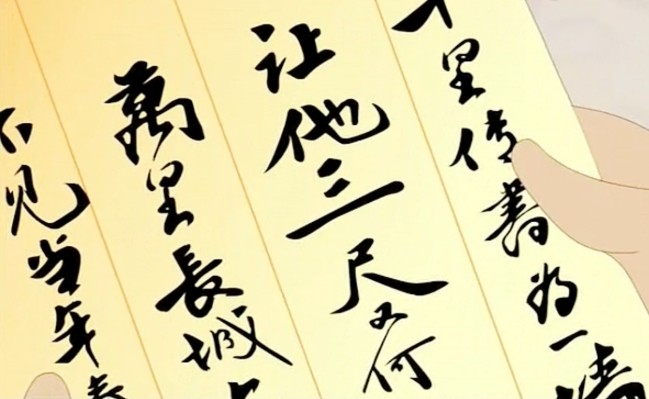 千里传书为一墙
让他三尺又何
萬里長城
不见当年秦